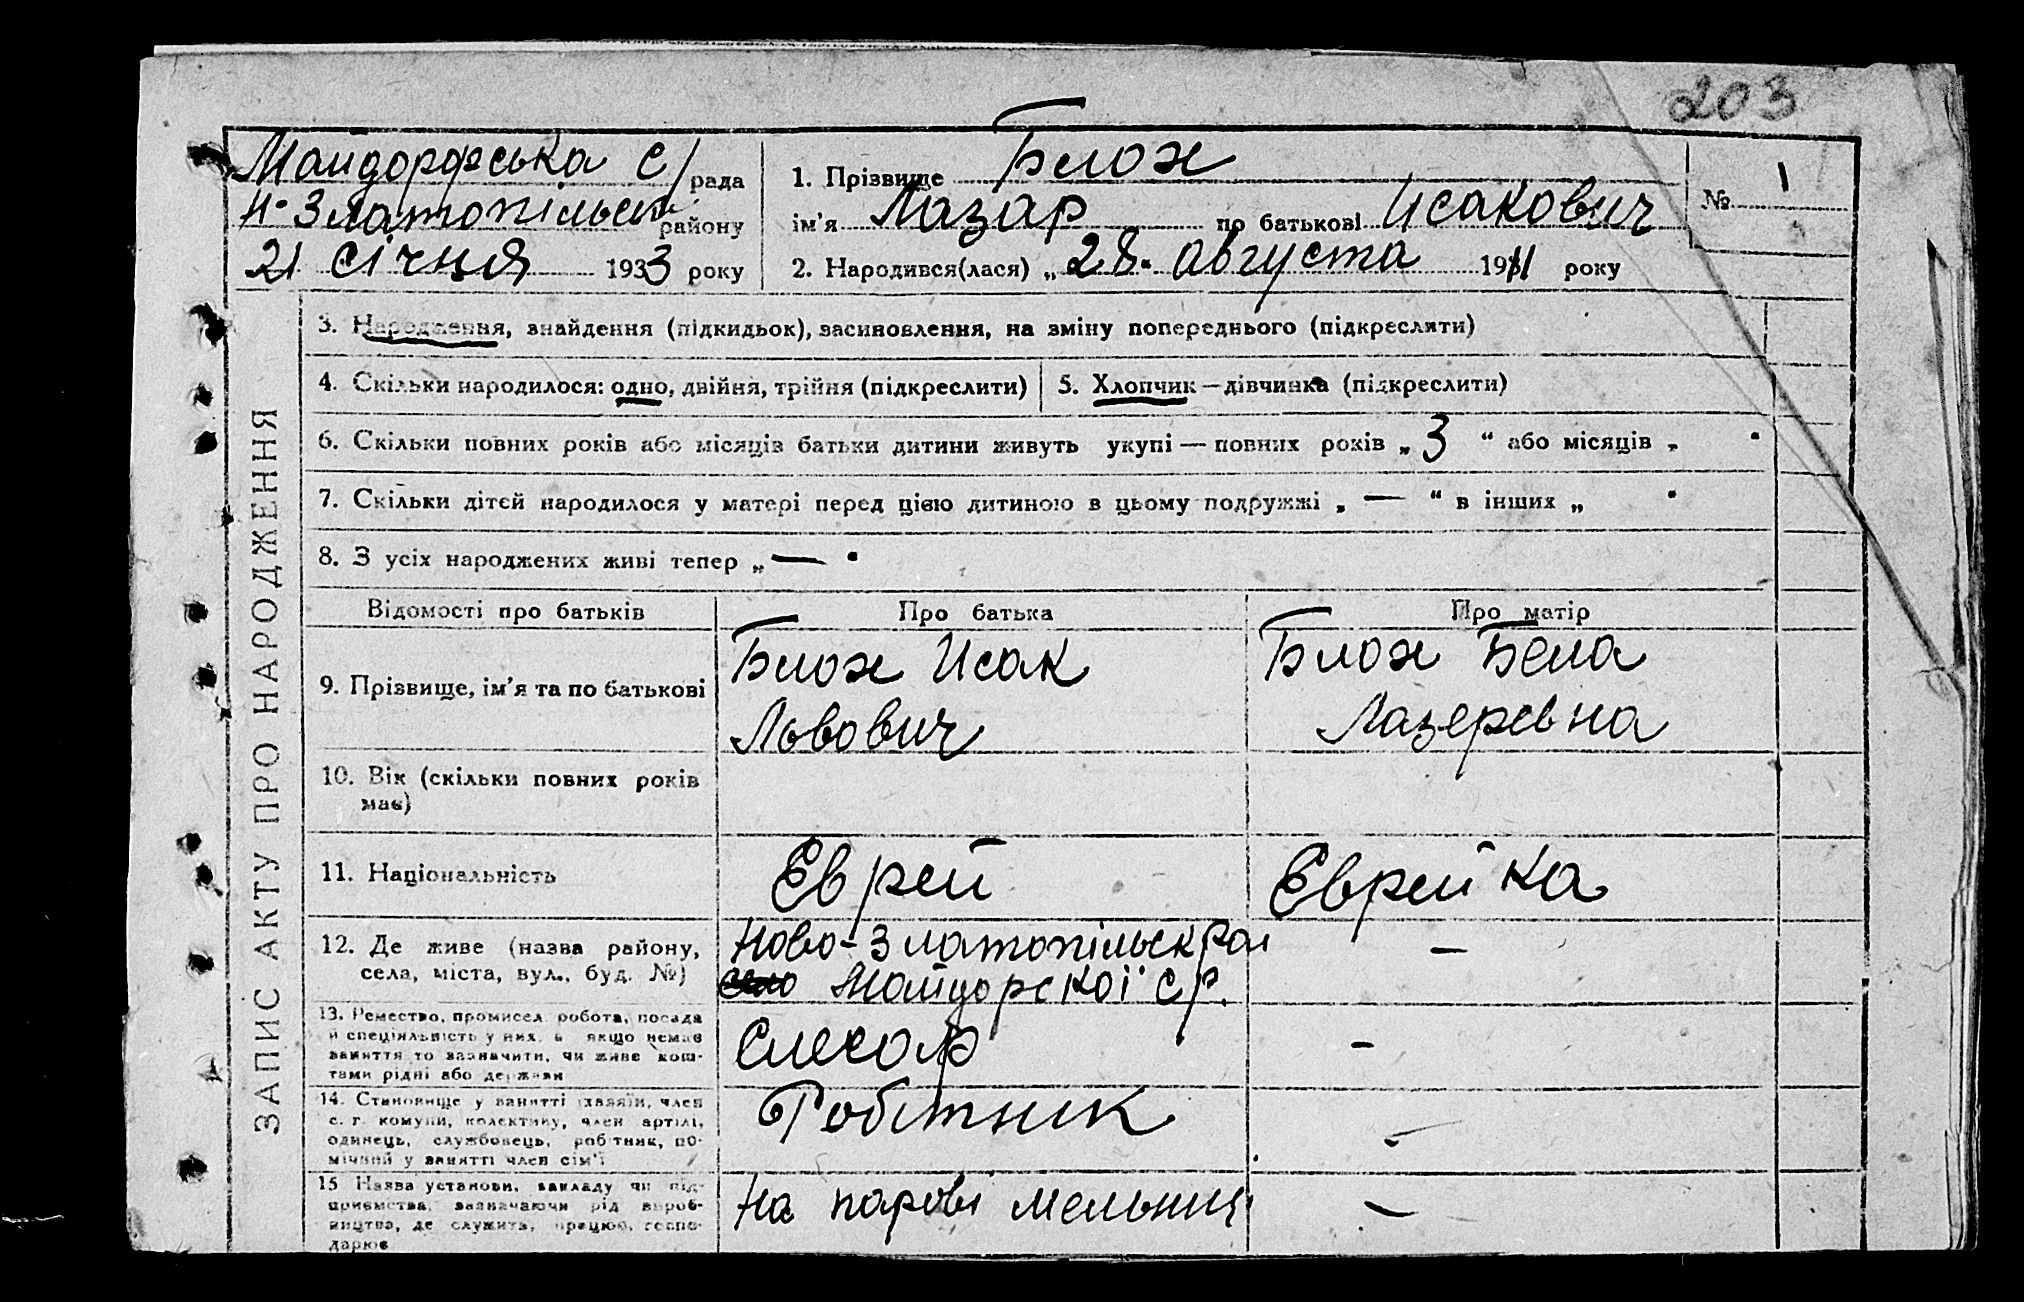 203
Майдорфська с/рада
Н-Златопільськ району
21 січня 1933 року
1. Прізвище Блох
ім'я Лазар по батькові Исакович
№ 1
2. Народився(лася) „28. августа 1911 року
ЗАПИС АКТУ ПРО НАРОДЖЕННЯ
3. Народження, знайдення (підкидьок), засиновлення, на зміну попереднього (підкреслити)
4. Скільки народилося: одно, двійня, трійня (підкреслити)
5. Хлопчик — дівчинка (підкреслити)
6. Скільки повних років або місяців батьки дитини живуть укупі — повних років „ 3 “ або місяців „
7. Скільки дітей народилося у матері перед цією дитиною в цьому подружжі „ — “ в інших „
8. З усіх народжених живі тепер „ —
Відомості про батьків
Про батька
Про матір
9. Прізвище, ім'я та по батькові
Блох Исак
Львович
Блох Бела
Лазеревна
10. Вік (скільки повних років
має)
11. Національність
Еврей
Еврейка
12. Де живе (назва району,
села, міста, вул., буд. №)
Ново-Златопільськ рай
Майдорскої с/р.
—
13. Ремество, промисел, робота, посада
й спеціяльність у них, а якщо немає
заняття то зазначити, чи живе кош-
тами рідні або держави
Слесар
—
14. Становище у занятті (хазяїн, член
с. г. комуни, колективу, член артілі,
одинець, службовець, робітник, по-
мічний у занятті член сім'ї
Робітник
—
15 Назва установи, закладу чи під-
приємства, зазначаючи рід вироб-
ництва, де служить, працює, госпо-
дарює
На парові мельниці
—